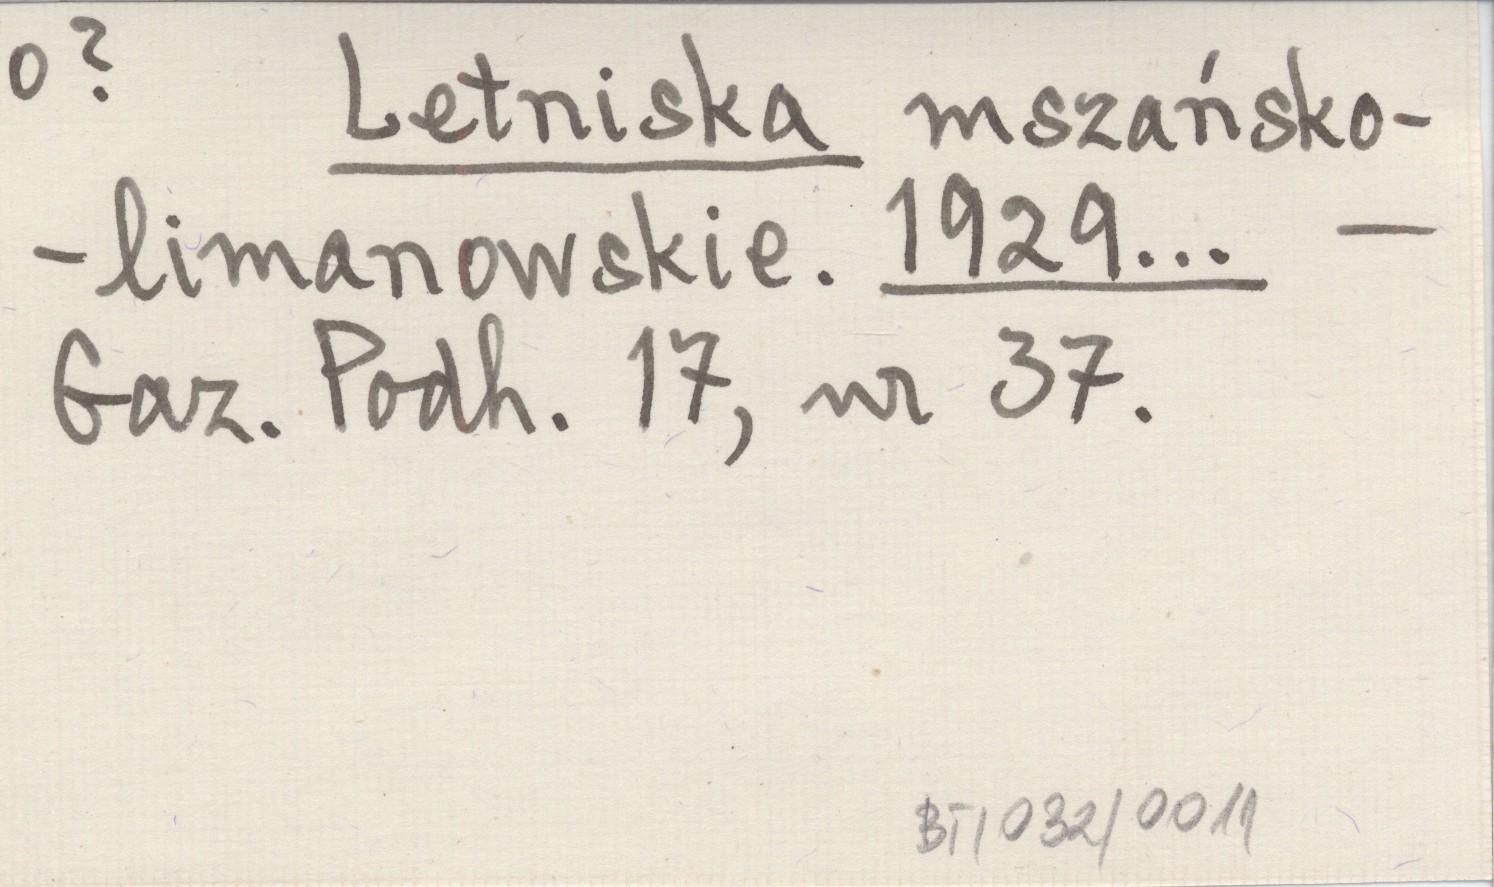 o?
Letniska mszańsko-
-limanowskie. 1929... —
Gaz. Podh. 17, nr 37.
BT/032/0011